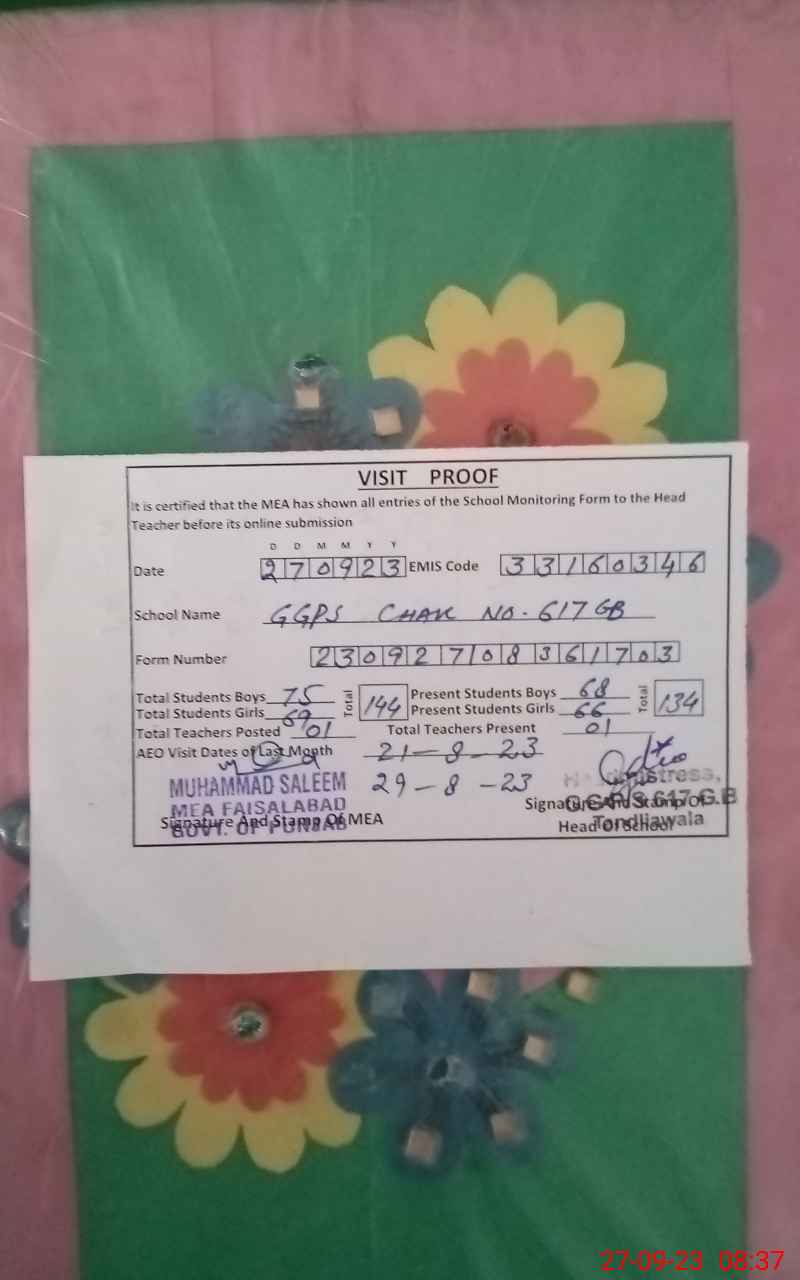 VISIT PROOF
It is certified that the MEA has shown all entries of the School Monitoring Form to the Head
Teacher before its online submission
D D M M Y Y
Date 270923 EMIS Code 33160346
School Name GGPS CHAK NO. 617 GB
Form Number 23092708361703
Total Students Boys 75 Total 144 Present Students Boys 68 Total 134
Total Students Girls 69 Present Students Girls 66
Total Teachers Posted 01 Total Teachers Present 01
AEO Visit Dates of Last Month 21-8-23
29-8-23
MUHAMMAD SALEEM
MEA FAISALABAD
GOVT. OF PUNJAB
Signature And Stamp Of MEA
Headmistress,
G.G.P/S 617 G.B
Tandliawala
Signature And Stamp Of
Head Of School
27-09-23 08:37